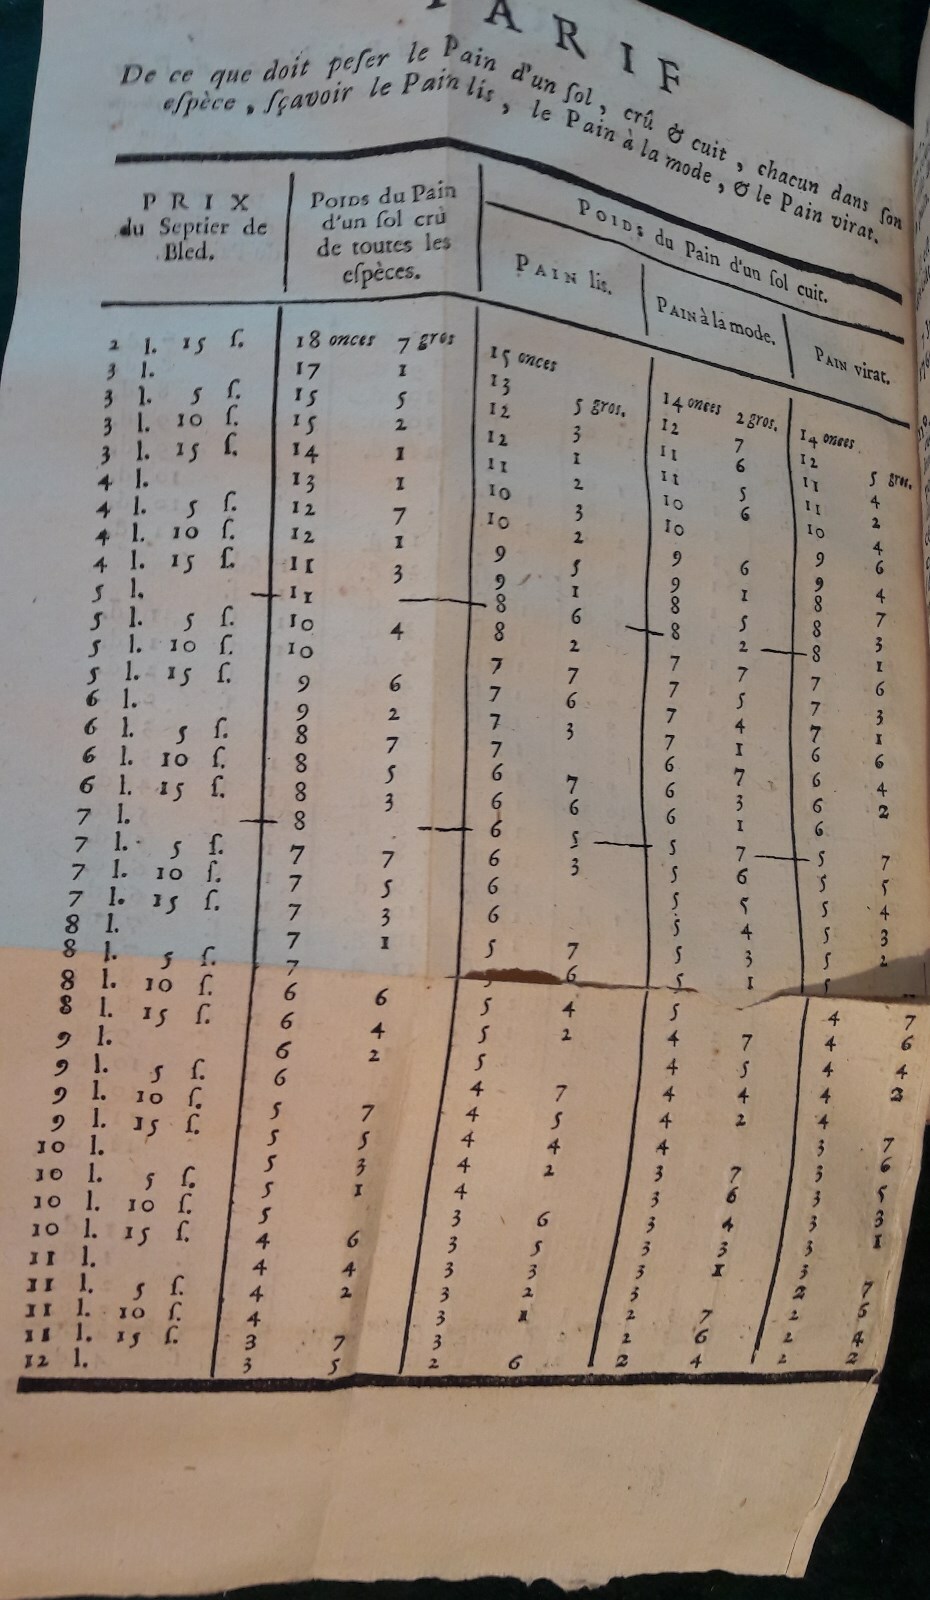 TARIF
De ce que doit peſer le Pain d'un ſol, crû & cuit, chacun dans ſon
eſpèce, ſçavoir le Pain lis, le Pain à la mode, & le Pain virat.
PRIX
du Septier de
Bled.
POIDS du Pain
d'un ſol crû
de toutes les
eſpèces.
POIDS du Pain d'un ſol cuit.
PAIN lis. PAIN à la mode. PAIN virat.
2 l. 15 ſ. 18 onces 7 gros 15 onces 14 onces 2 gros. 14 onces
3 l. 17 1 13 5 gros. 12 7 12 5 gros.
3 l. 5 ſ. 15 5 12 3 11 6 11 4
3 l. 10 ſ. 15 2 12 1 11 5 11 2
3 l. 15 ſ. 14 1 11 2 10 6 10 4
4 l. 13 1 10 3 10 9 6
4 l. 5 ſ. 12 7 10 2 9 6 9 4
4 l. 10 ſ. 12 1 9 5 9 1 8 7
4 l. 15 ſ. 11 3 9 1 8 5 8 3
5 l. — 11 — 8 6 — 8 2 — 8 1
5 l. 5 ſ. 10 4 8 2 7 7 7 6
5 l. 10 ſ. 10 7 7 7 5 7 3
5 l. 15 ſ. 9 6 7 6 7 4 7 1
6 l. 9 2 7 3 7 1 6 6
6 l. 5 ſ. 8 7 7 6 7 6 4
6 l. 10 ſ. 8 5 6 7 6 3 6 2
6 l. 15 ſ. 8 3 6 6 6 1 6
7 l. — 8 — 6 5 — 5 7 — 5 7
7 l. 5 ſ. 7 7 6 3 5 6 5 5
7 l. 10 ſ. 7 5 6 5 5 5 4
7 l. 15 ſ. 7 3 6 5 4 5 3
8 l. 7 1 5 7 5 3 5 2
8 l. 5 ſ. 7 5 6 5 1 5
8 l. 10 ſ. 6 6 5 4 5 4 7
8 l. 15 ſ. 6 4 5 2 4 7 4 6
9 l. 6 2 5 4 5 4 4
9 l. 5 ſ. 6 4 7 4 4 4 2
9 l. 10 ſ. 5 7 4 5 4 2 4
9 l. 15 ſ. 5 5 4 4 4 3 7
10 l. 5 3 4 2 3 7 3 6
10 l. 5 ſ. 5 1 4 3 6 3 5
10 l. 10 ſ. 5 3 6 3 4 3 3
10 l. 15 ſ. 4 6 3 5 3 3 3 1
11 l. 4 4 3 3 3 1 3
11 l. 5 ſ. 4 2 3 2 3 2 7
11 l. 10 ſ. 4 3 1 2 7 2 6
11 l. 15 ſ. 3 7 3 2 6 2 4
12 l. 3 5 2 6 2 4 2 2